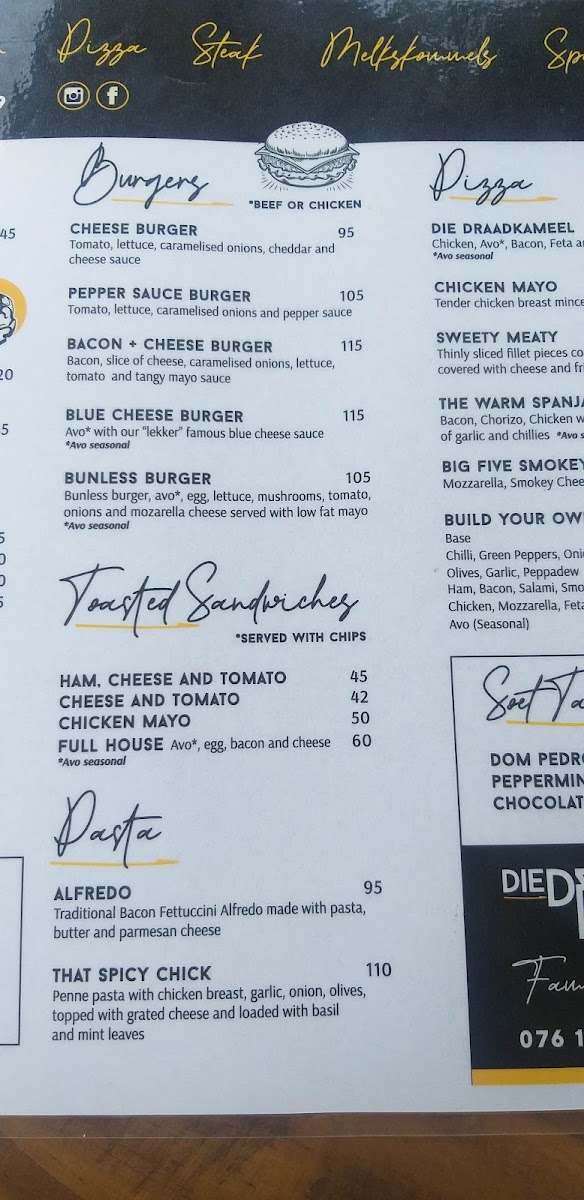 Pizza Steak Melkskommels
Burgers
*BEEF OR CHICKEN
CHEESE BURGER 95
Tomato, lettuce, caramelised onions, cheddar and
cheese sauce
PEPPER SAUCE BURGER 105
Tomato, lettuce, caramelised onions and pepper sauce
BACON + CHEESE BURGER 115
Bacon, slice of cheese, caramelised onions, lettuce,
tomato and tangy mayo sauce
BLUE CHEESE BURGER 115
Avo* with our "lekker" famous blue cheese sauce
*Avo seasonal
BUNLESS BURGER 105
Bunless burger, avo*, egg, lettuce, mushrooms, tomato,
onions and mozarella cheese served with low fat mayo
*Avo seasonal
Toasted Sandwiches
*SERVED WITH CHIPS
HAM, CHEESE AND TOMATO 45
CHEESE AND TOMATO 42
CHICKEN MAYO 50
FULL HOUSE Avo*, egg, bacon and cheese 60
*Avo seasonal
Pasta
ALFREDO 95
Traditional Bacon Fettuccini Alfredo made with pasta,
butter and parmesan cheese
THAT SPICY CHICK 110
Penne pasta with chicken breast, garlic, onion, olives,
topped with grated cheese and loaded with basil
and mint leaves
Pizza
DIE DRAADKAMEEL
Chicken, Avo*, Bacon, Feta
*Avo seasonal
CHICKEN MAYO
Tender chicken breast mince
SWEETY MEATY
Thinly sliced fillet pieces
covered with cheese and
THE WARM
Bacon, Chorizo, Chicken
of garlic and chillies *Avo
BIG FIVE SMOKEY
Mozzarella, Smokey
BUILD YOUR
Base
Chilli, Green Peppers,
Olives, Garlic, Peppadew
Ham, Bacon, Salami,
Chicken, Mozzarella,
Avo (Seasonal)
Soet
DOM
DIE
076